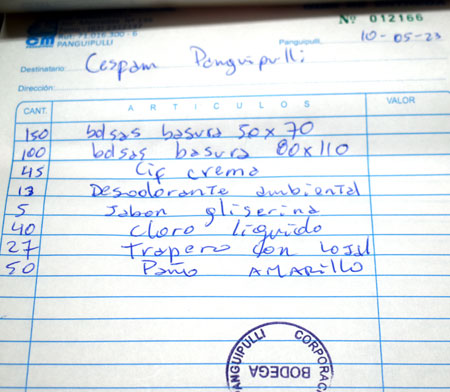 PANGUIPULLI
Nº 012166
Panguipulli, 10-05-23
Destinatario: Cespam Panguipulli
Dirección:
CANT. ARTICULOS VALOR
150 bolsas basura 50x70
100 bolsas basura 80x110
45 Cif crema
13 Desodorante ambiental
5 Jabon gliserina
40 Cloro liquido
27 Trapero con
50 Paño AMARILLO
PANGUIPULLI CORPORAC
BODEGA